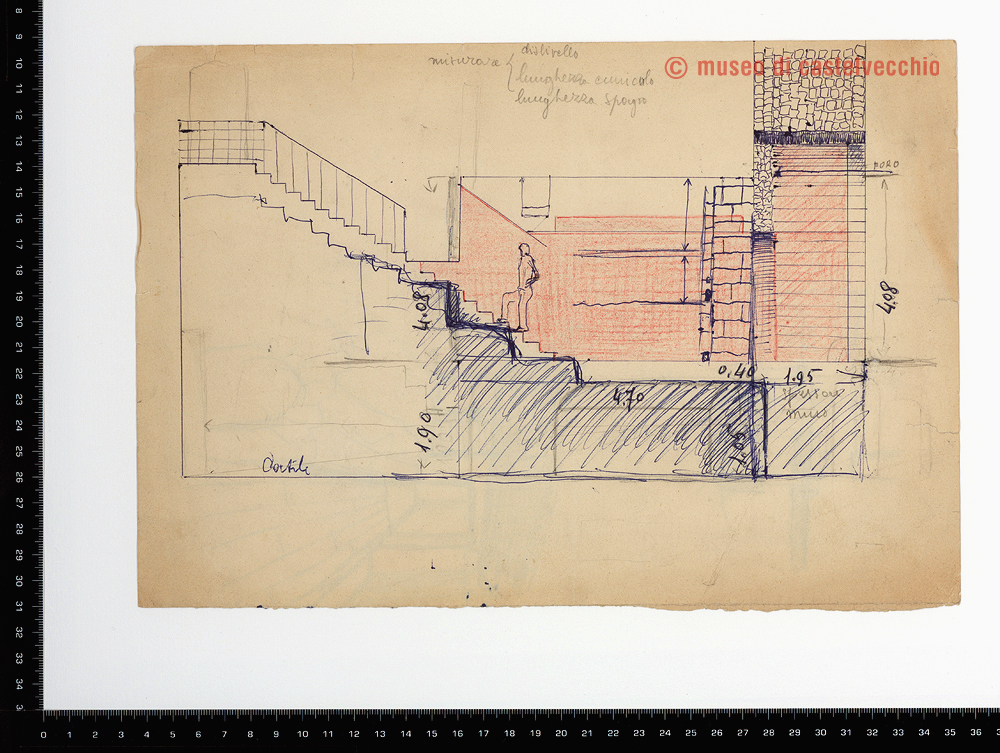 © museo di castelvecchio
misurare
dislivello
lunghezza cunicolo
lunghezza
FORO
4.08
4.08
0.40
1.95
4.70
muro
1.90
Cortile
8
9
10
11
12
13
14
15
16
17
18
19
20
21
22
23
24
25
26
27
28
29
30
31
32
33
34
0 1 2 3 4 5 6 7 8 9 10 11 12 13 14 15 16 17 18 19 20 21 22 23 24 25 26 27 28 29 30 31 32 33 34 35 36